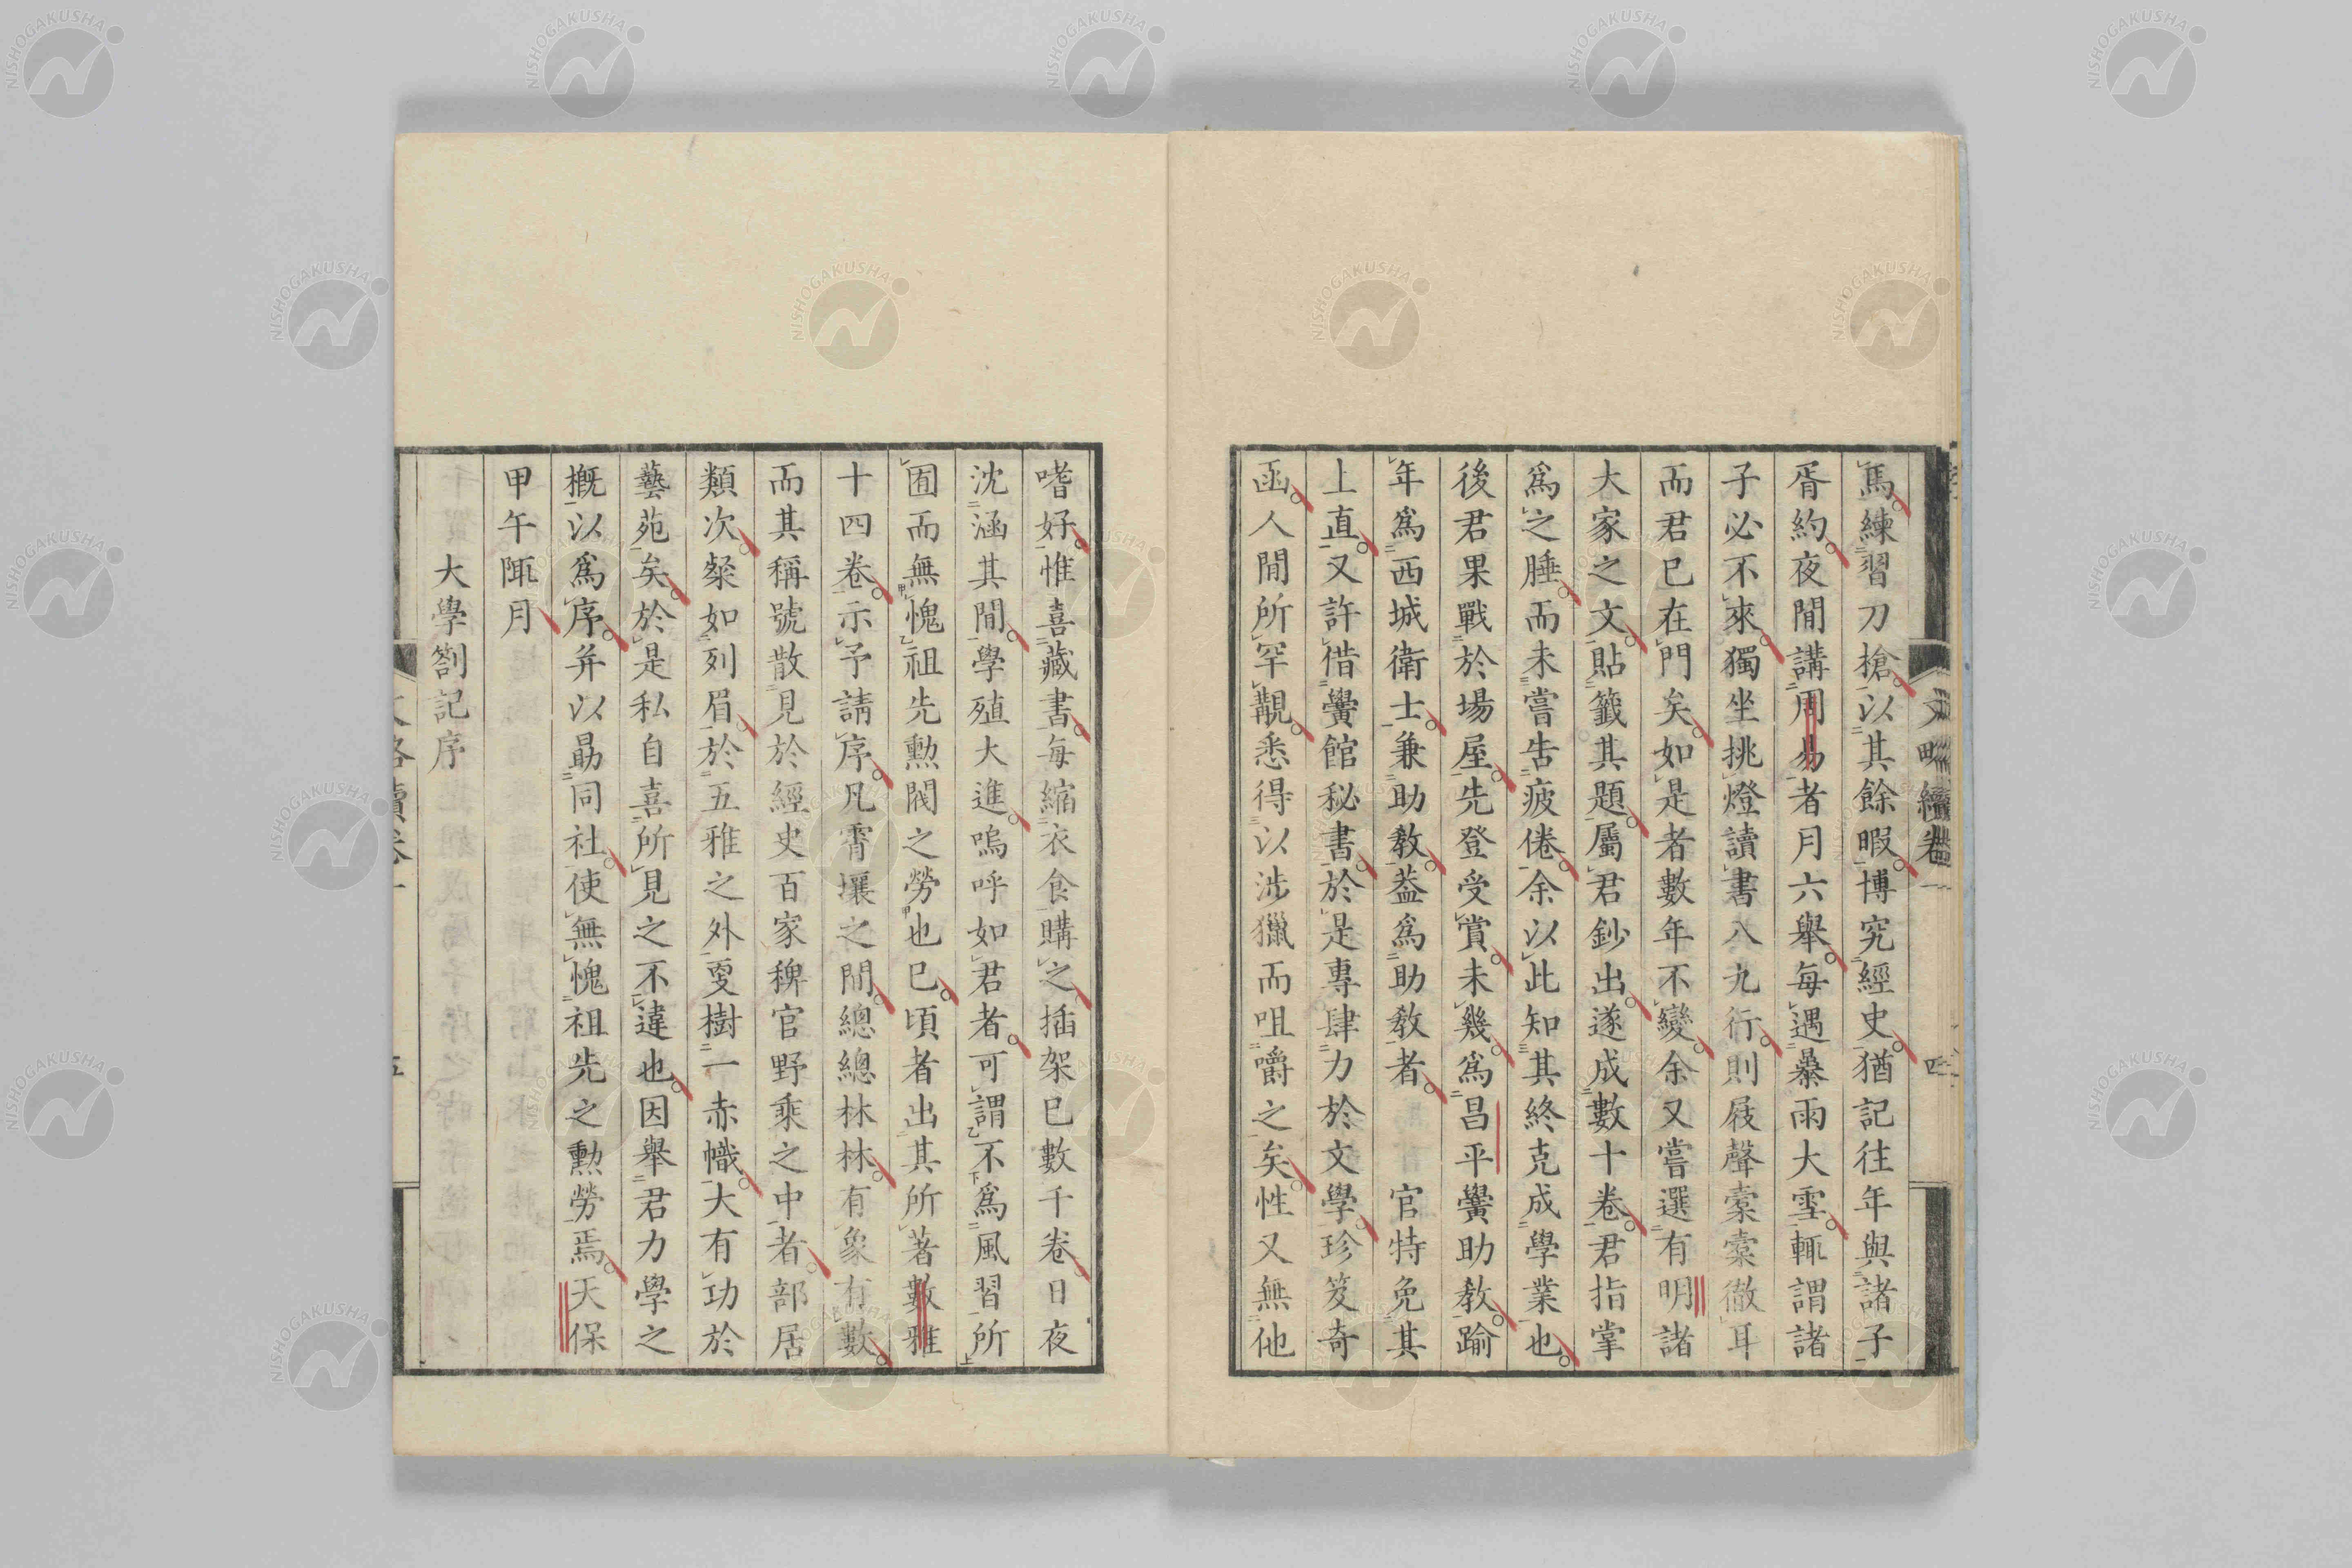 馬練習刀槍以其餘暇博究經史猶記往年與諸子
胥約夜間講周易者月六舉每遇暴雨大雪輒謂諸
子必不來獨坐挑燈讀書八九行則屐聲橐橐徹耳
而君已在門矣如是者數年不變余又嘗選有明諸
大家之文貼籤其題屬君鈔出遂成數十卷君指掌
爲之腄而未嘗告疲倦余以此知其終克成學業也
後君果戰於場屋先登受賞未幾爲昌平黌助教踰
年爲西城衛士兼助教蓋爲助教者 官特免其
上直又許借黌館秘書於是專肆力於文學珍笈奇
函人間所罕覯悉得以涉獵而咀嚼之矣性又無他
嗜好惟喜藏書每縮衣食購之插架已數千卷日夜
沈涵其間學殖大進嗚呼如君者可謂不爲風習所
囿而無愧祖先勲閥之勞也已頃者出其所著數雅
十四卷示予請序凡霄壤之間總總林林有象有數
而其稱號散見於經史百家稗官野乘之中者部居
類次粲如列眉於五雅之外更樹一赤幟大有功於
藝苑矣於是私自喜所見之不違也因舉君力學之
概以爲序并以勗同社使無愧祖先之勲勞焉天保
甲午陬月
大學劄記序
文略續卷一
四
NISHOGAKUSHA